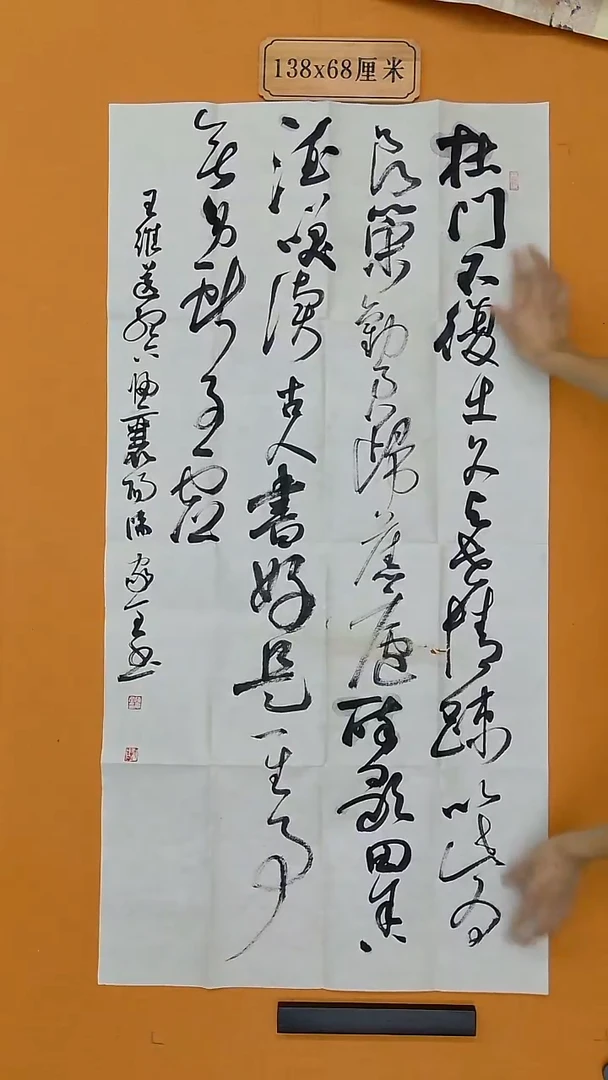 138x68厘米
杜门不復出久与世情踈以此为
良策勸君歸舊廬醉歌田舍
酒笑读古人書好是一生事
无劳献子虚
王維送孟六归襄陽诗